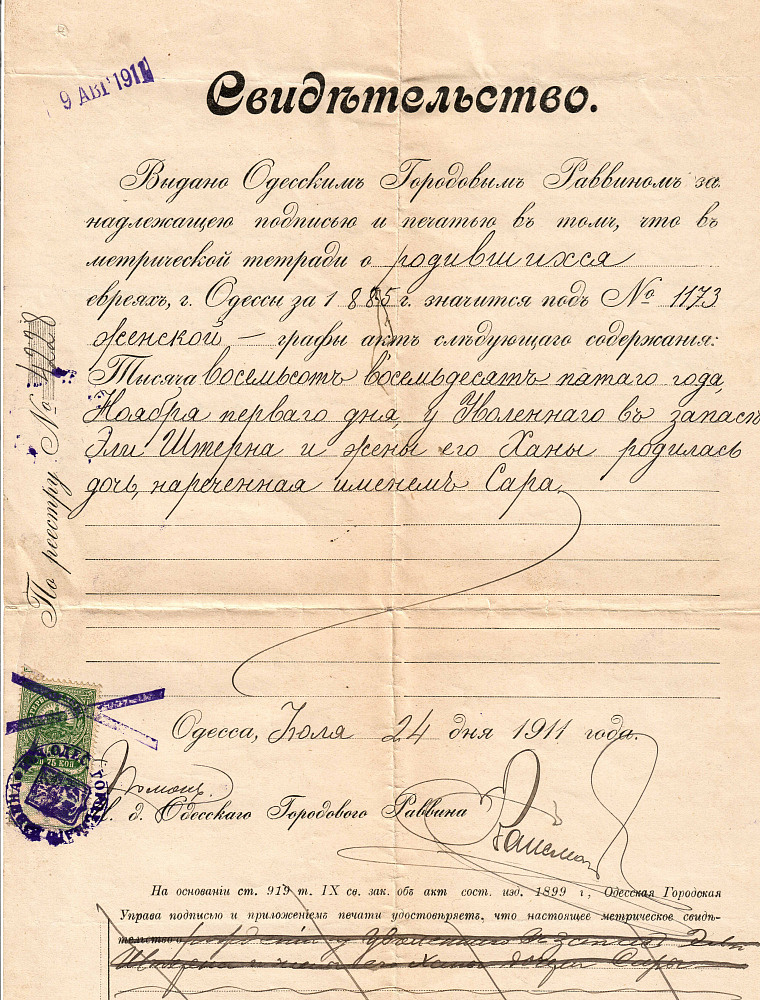 9 АВГ 1911
Свидѣтельство.
Выдано Одесскимъ Городовымъ Раввиномъ за
надлежащею подписью и печатью въ томъ, что въ
метрической тетради о родившихся
евреяхъ, г. Одессы за 1885 г. значится подъ № 1173
женской — графы актъ слѣдующаго содержанія:
Тысяча восемьсотъ восемьдесятъ пятаго года,
Ноября перваго дня, у Уволеннаго въ запасъ
Эли Штерна и жены его Ханы родилась
дочь, нареченная именемъ Сара.
По реестру № 4228
Одесса, Іюля 24 дня 1911 года.
75 КОП
Помощ.
д. Одесскаго Городового Раввина
На основаніи ст. 919 т. IX св. зак. объ акт сост. изд. 1899 г., Одесская Городская
Управа подписью и приложеніемъ печати удостовѣряетъ, что настоящее метрическое свидѣ-
тельство о рожденіи у Уволеннаго въ запасъ Эли
Штерна и жены его Ханы дочери Сары